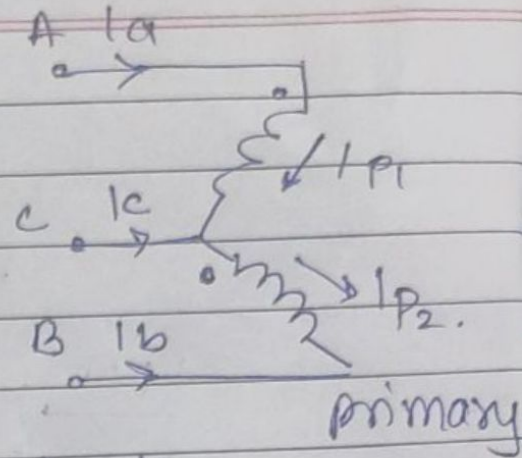 A Ia
Ip1
C Ic
Ip2.
B Ib
primary